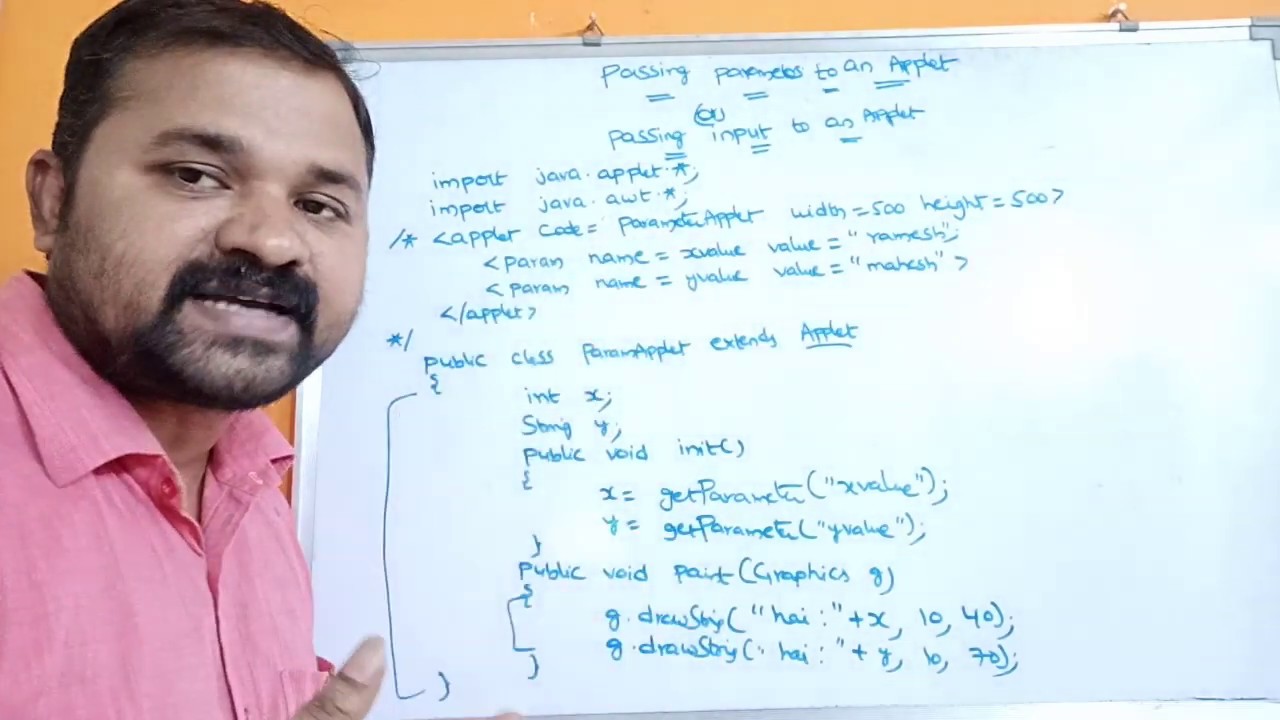 Passing parameters to an Applet
(or)
passing input to an Applet
import java.applet.*;
import java.awt.*;
/* <applet code="ParameterApplet width=500 height=500>
<param name = xvalue value = "ramesh";
<param name = yvalue value = "mahesh" >
</applet>
*/
public class ParamApplet extends Applet
{
int x;
String y;
public void init()
{
x = getParameter("xvalue");
y = getParameter("yvalue");
}
public void paint(Graphics g)
{
g.drawString("hai:"+x, 10, 40);
g.drawString(" hai:"+ y, 10, 70);
}
}